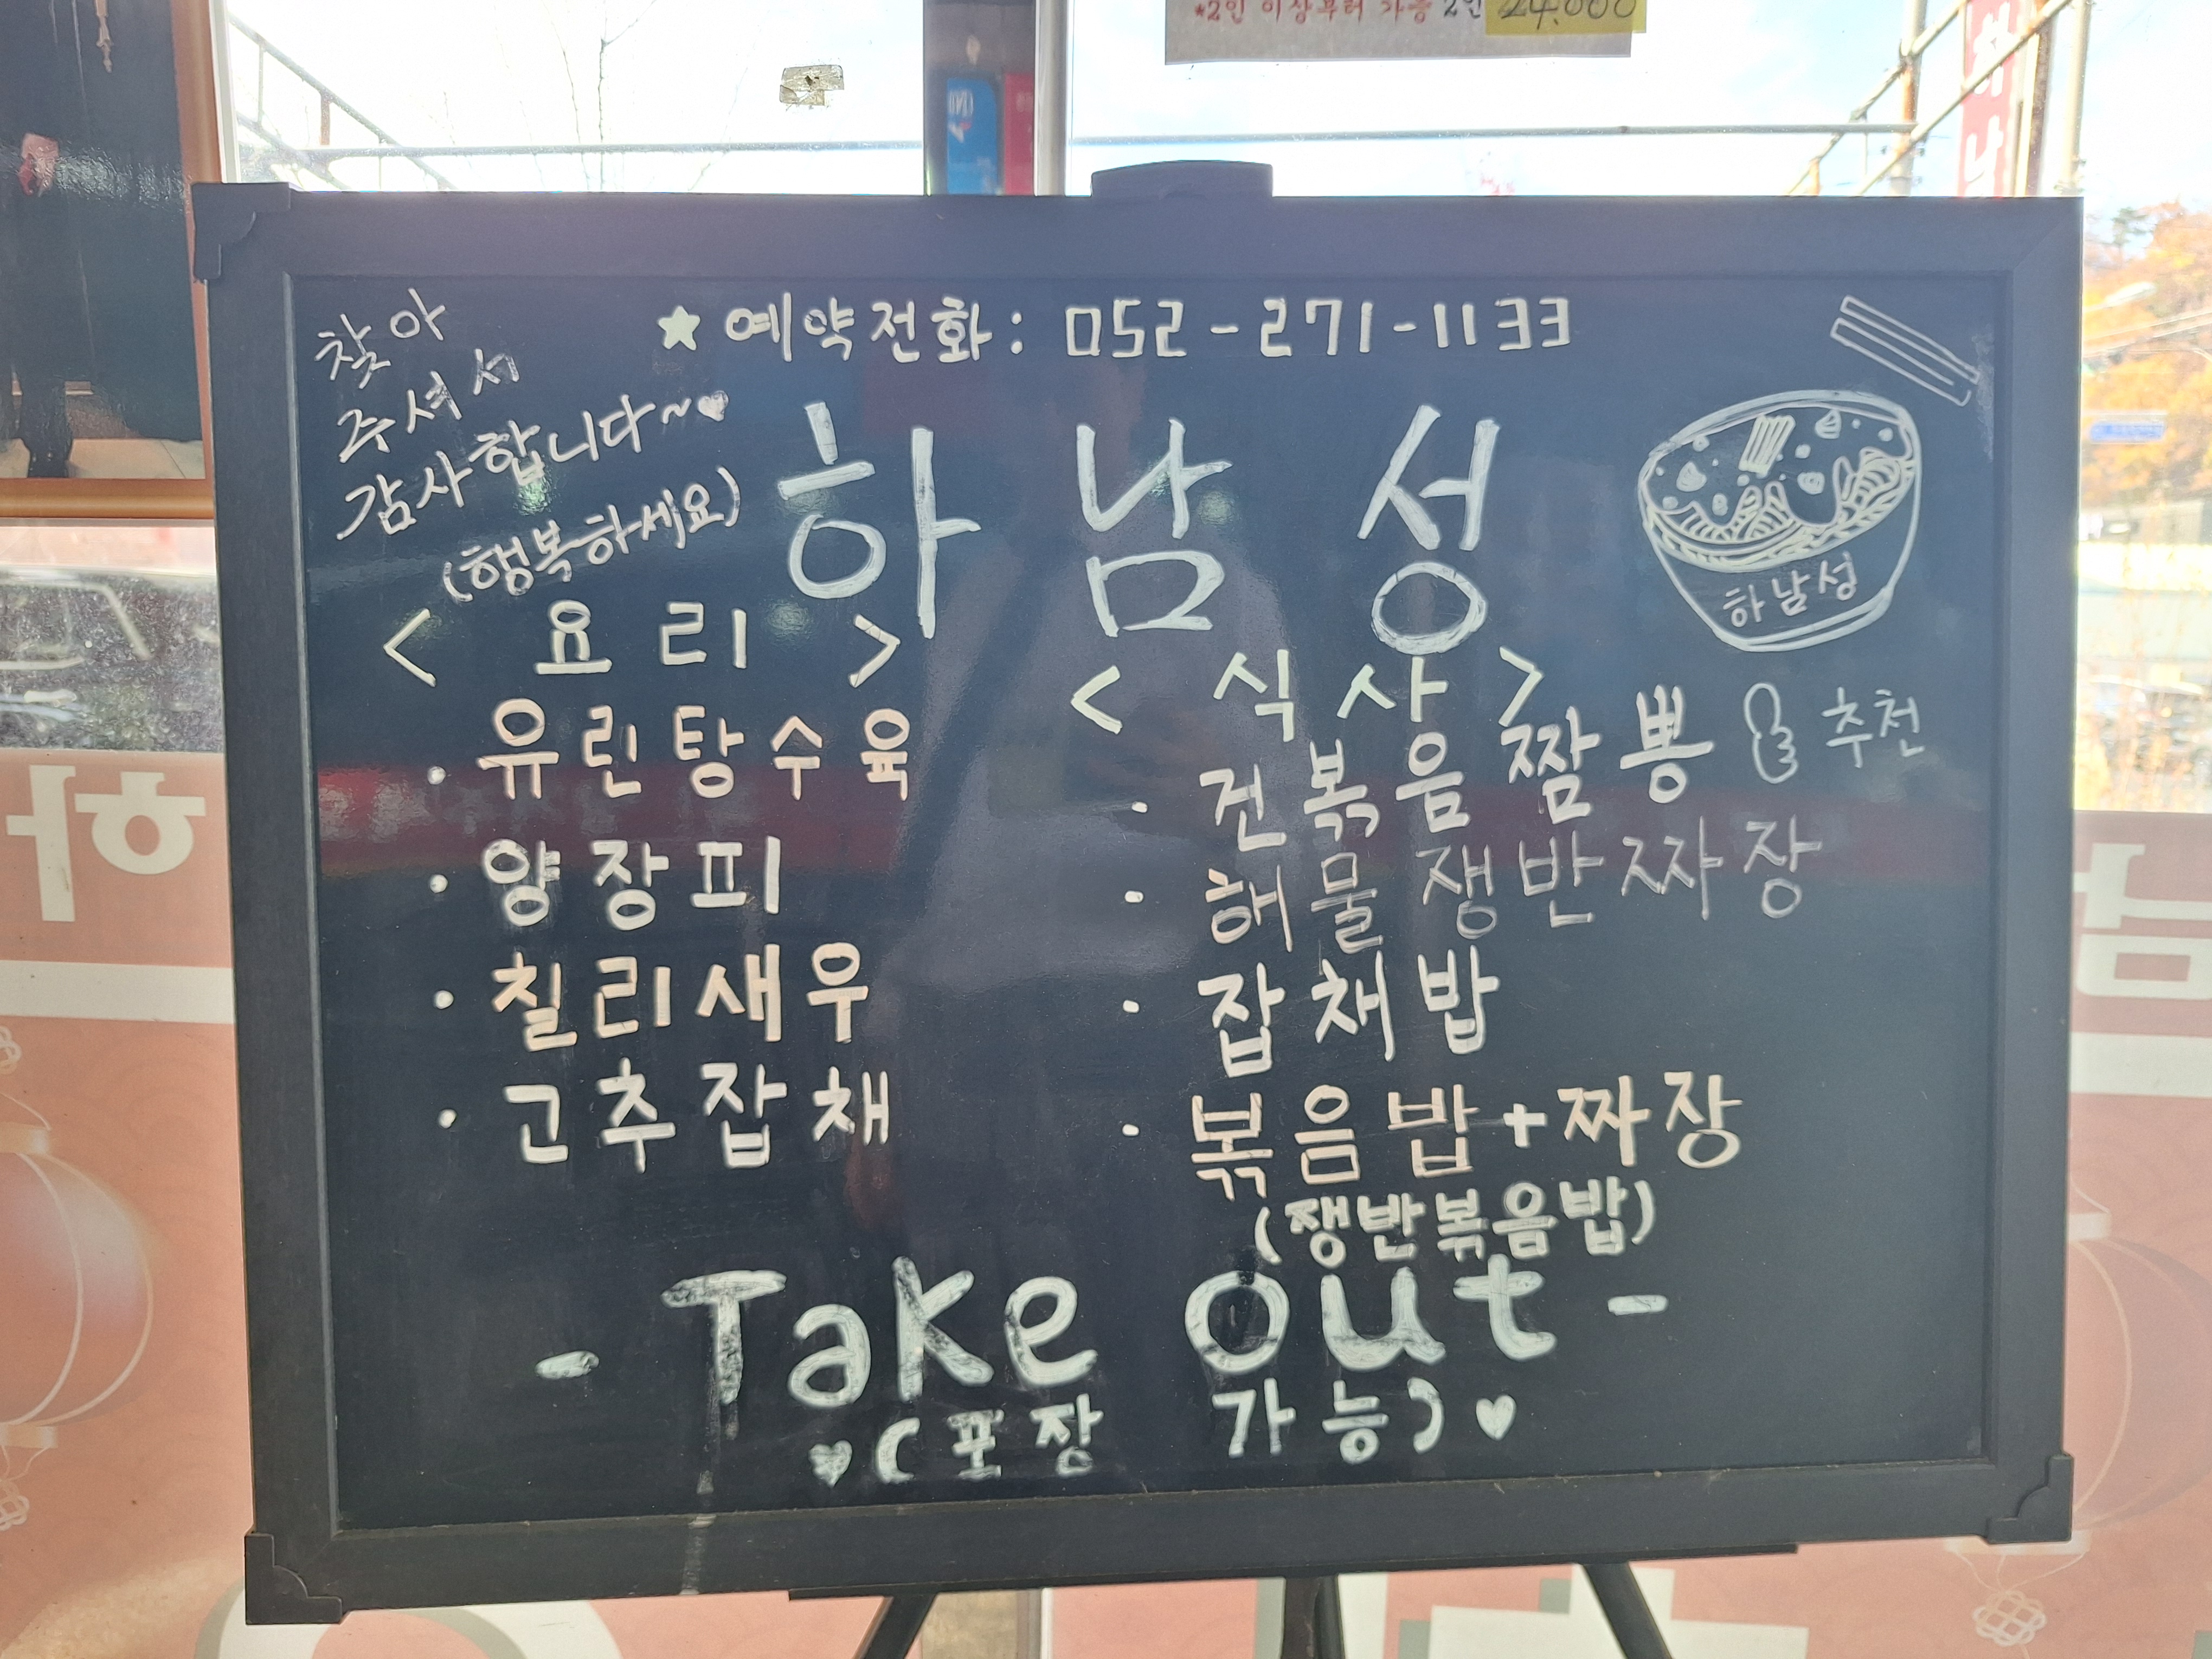 *2인 이상부터 가능 2인 24.000
찾아
주셔서
감사합니다~♥
(행복하세요)
★예약전화: 052-271-1133
하남성
하남성
< 요리 >
· 유린탕수육
· 양장피
· 칠리새우
· 고추잡채
< 식사 >
· 건볶음짬뽕 추천
· 해물쟁반짜장
· 잡채밥
· 볶음밥+짜장
(쟁반볶음밥)
- Take out -
♥(포장 가능)♥
하
남
하남